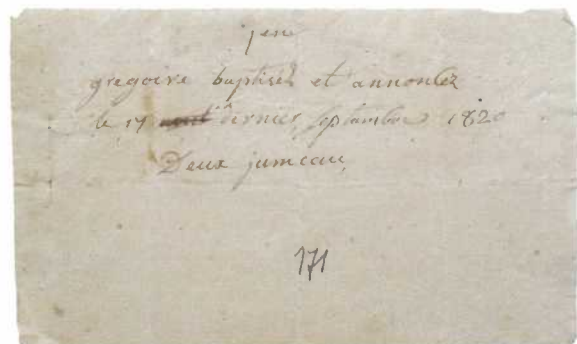 jen
gregoire baptisé et annontez
le 17 dernier septambre 1820
Deux jumeau
171